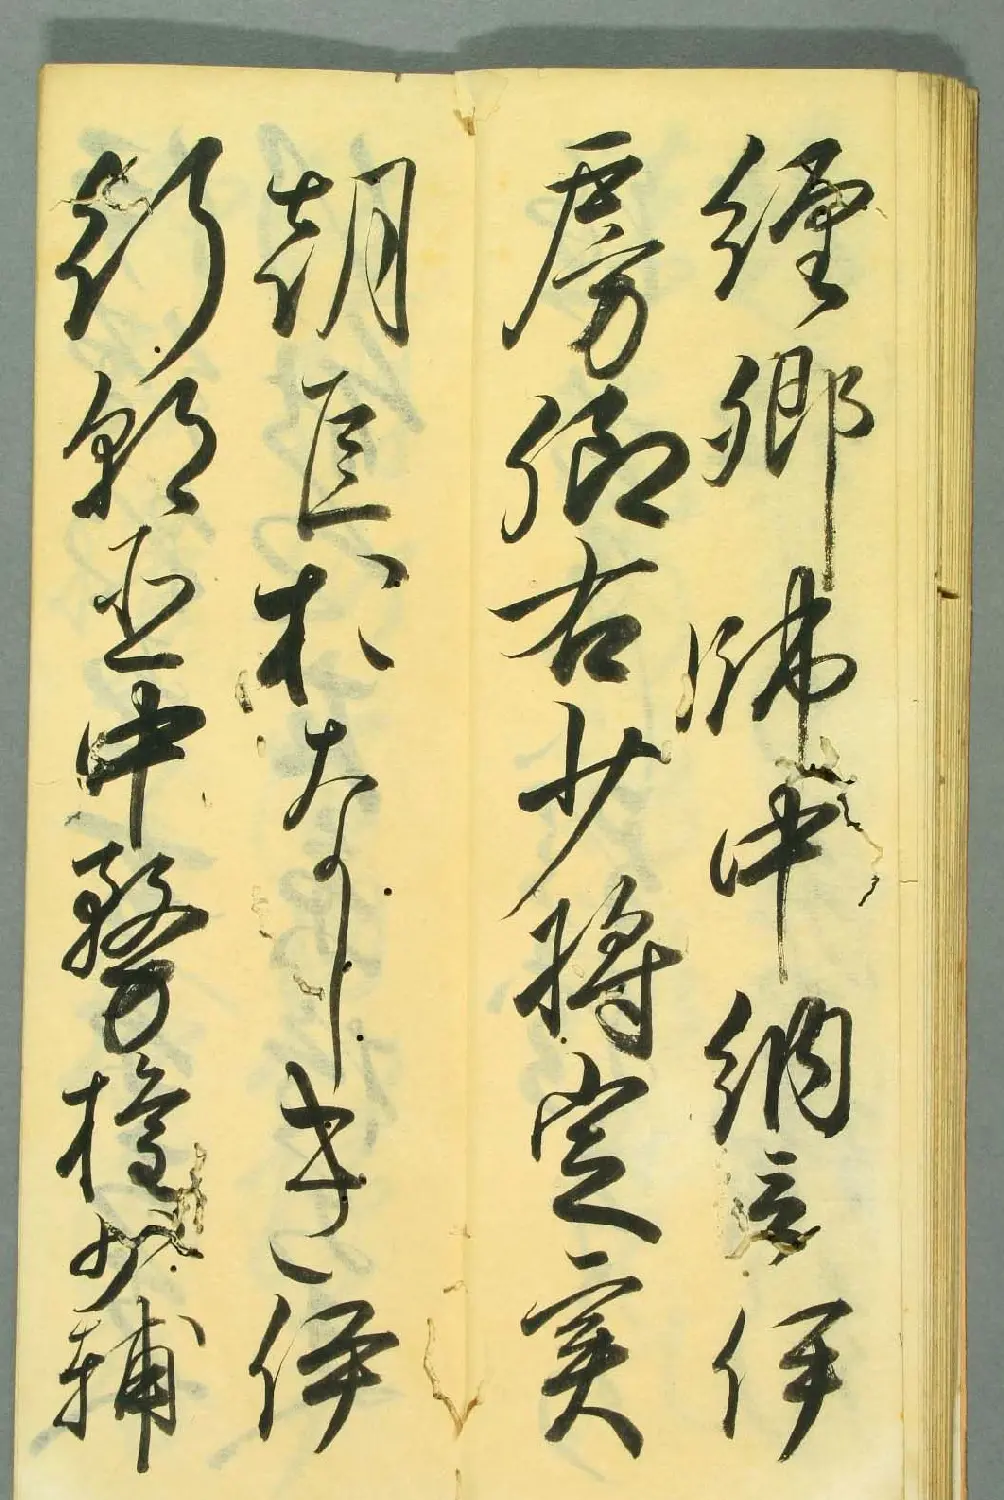 経郷帥中納言伊
房卿右少将定実
朝臣扵大なしき伊
行朝臣中務権少輔